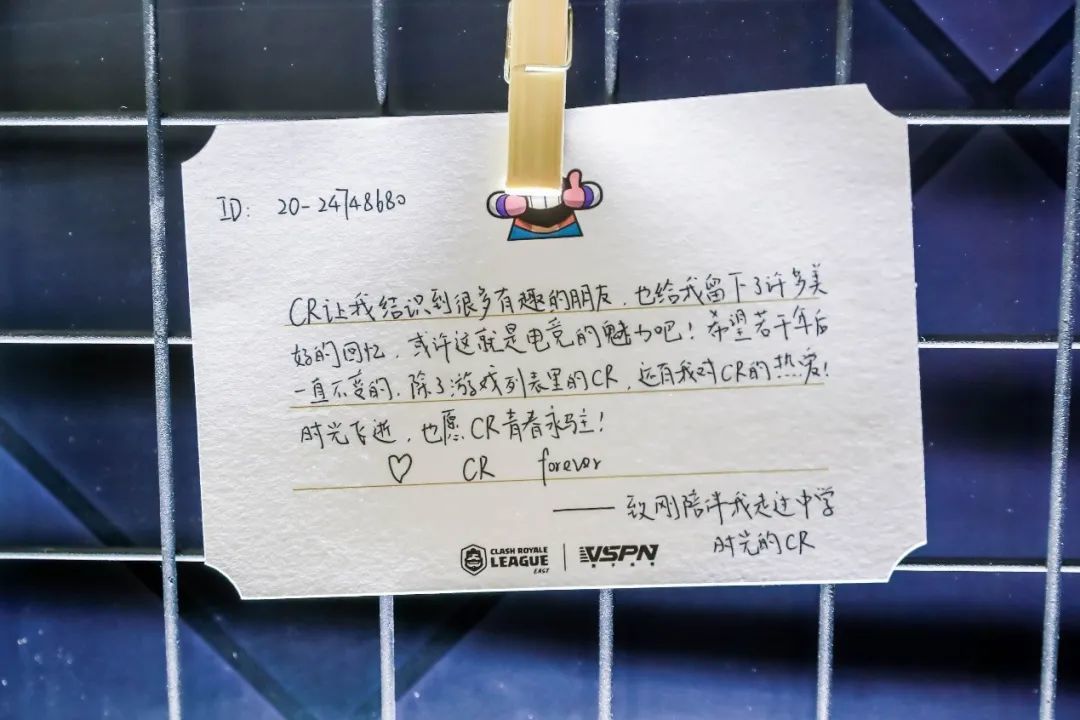 ID: 20-24748680
CR让我结识到很多有趣的朋友，也给我留下了许多美
好的回忆，或许这就是电竞的魅力吧！希望若干年后
一直不变的，除了游戏列表里的CR，还有我对CR的热爱！
时光飞逝，也愿CR青春永驻！
♡ CR forever
——致刚陪伴我走过中学
时光的CR
CLASH ROYALE
LEAGUE
EAST
VSPN